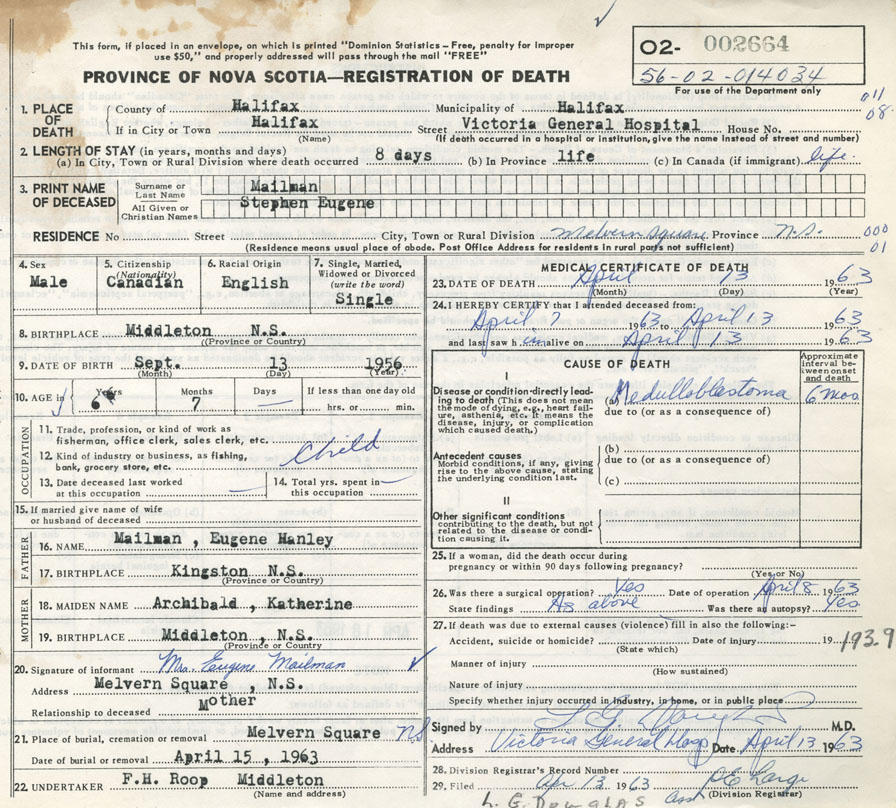 This form, if placed in an envelope, on which is printed "Dominion Statistics – Free, penalty for improper
use $50," and properly addressed will pass through the mail "FREE"
O2- 002664
56-02-014034
For use of the Department only
PROVINCE OF NOVA SCOTIA—REGISTRATION OF DEATH
1. PLACE OF DEATH
County of Halifax Municipality of Halifax 011
If in City or Town Halifax Street Victoria General Hospital House No. 08
(Name) (If death occurred in a hospital or institution, give the name instead of street and number)
2. LENGTH OF STAY (in years, months and days)
(a) In City, Town or Rural Division where death occurred 8 days (b) In Province life (c) In Canada (if immigrant) life.
3. PRINT NAME OF DECEASED
Surname or Last Name Mailman
All Given or Christian Names Stephen Eugene
RESIDENCE No Street City, Town or Rural Division Melvern Square Province N.S. 000
01
(Residence means usual place of abode. Post Office Address for residents in rural parts not sufficient)
4. Sex Male
5. Citizenship (Nationality) Canadian
6. Racial Origin English
7. Single, Married, Widowed or Divorced (write the word) Single
8. BIRTHPLACE Middleton N.S.
(Province or Country)
9. DATE OF BIRTH Sept. 13 1956
(Month) (Day) (Year)
10. AGE in Years 6 Months 7 Days — If less than one day old hrs. or min.
OCCUPATION
11. Trade, profession, or kind of work as
fisherman, office clerk, sales clerk, etc.
Child
12. Kind of industry or business, as fishing,
bank, grocery store, etc.
13. Date deceased last worked
at this occupation —
14. Total yrs. spent in
this occupation —
15. If married give name of wife
or husband of deceased
FATHER
16. NAME Mailman , Eugene Hanley
17. BIRTHPLACE Kingston N.S.
(Province or Country)
MOTHER
18. MAIDEN NAME Archibald , Katherine
19. BIRTHPLACE Middleton , N.S.
(Province or Country)
20. Signature of informant Mrs. Eugene Mailman
Address Melvern Square , N.S.
Relationship to deceased Mother
21. Place of burial, cremation or removal Melvern Square N.S.
Date of burial or removal April 15 , 1963
22. UNDERTAKER F.H. Roop Middleton
(Name and address)
MEDICAL CERTIFICATE OF DEATH
23. DATE OF DEATH April 13 1963
(Month) (Day) (Year)
24. I HEREBY CERTIFY that I attended deceased from:
April 7 1963 to April 13 1963
and last saw him alive on April 13 1963
CAUSE OF DEATH
Approximate interval between onset and death
I
Disease or condition directly leading to death (This does not mean the mode of dying, e.g., heart failure, asthenia, etc. It means the disease, injury, or complication which caused death.)
(a) Medulloblastoma 6 mos
due to (or as a consequence of)
Antecedent causes
Morbid conditions, if any, giving rise to the above cause, stating the underlying condition last.
(b)
due to (or as a consequence of)
(c)
II
Other significant conditions
contributing to the death, but not related to the disease or condition causing it.
25. If a woman, did the death occur during
pregnancy or within 90 days following pregnancy?
(Yes or No)
26. Was there a surgical operation? Yes Date of operation April 8 1963
State findings As above Was there an autopsy? Yes
27. If death was due to external causes (violence) fill in also the following:-
Accident, suicide or homicide? Date of injury 19 193.9
(State which)
Manner of injury
(How sustained)
Nature of injury
Specify whether injury occurred in industry, in home, or in public place
Signed by M.D.
Address Victoria General Hosp Date April 13 1963
28. Division Registrar's Record Number
29. Filed Apr 13 1963
(Division Registrar)
L. G. Douglas